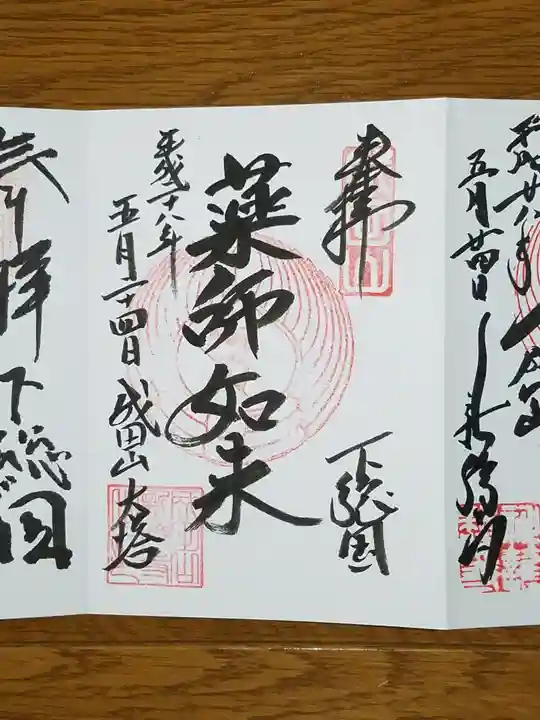 平成廿八年 成田山
五月廿四日 新勝寺
奉拝
下総国
薬師如来
平成二十八年
五月二十四日 成田山 大塔
奉拝
下総国